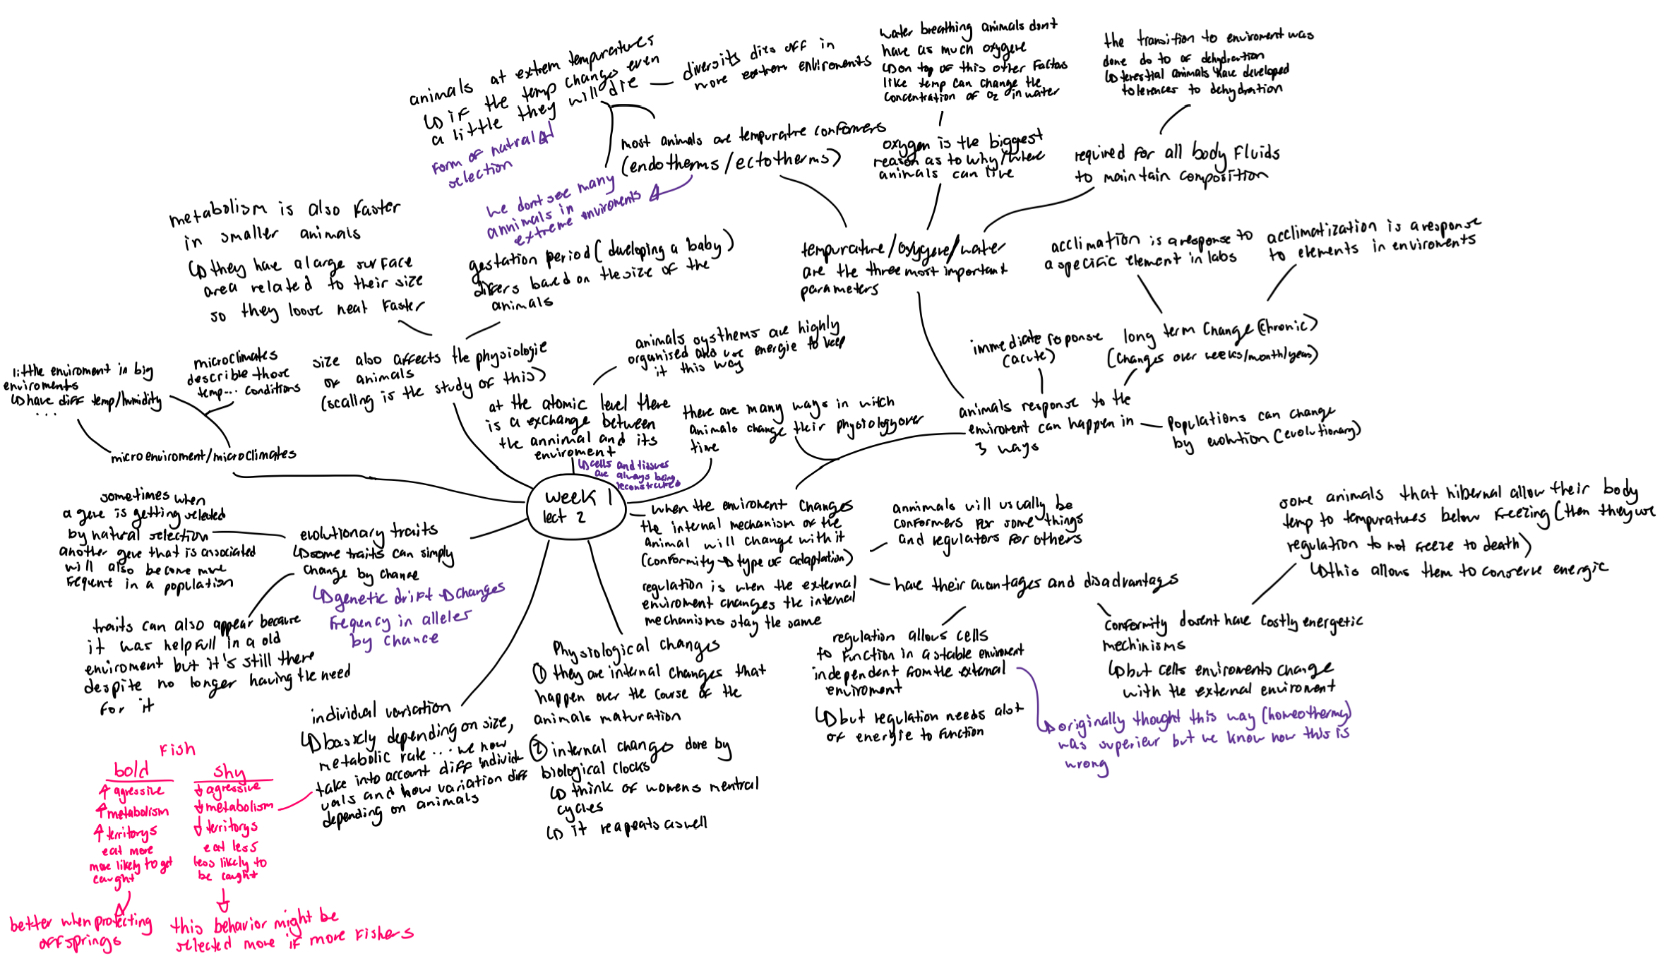 animals at extrem tempuratures
↳ if the temp change even
a little they will die
form of natral
selection
diversits dies off in
more extrem enviroments
water breathing animals dont
have as much oxygene
↳ on top of this other factors
like temp can change the
concentration of O2 in water
the transition to enviroment was
done do to of dehydration
↳ terestial animals have developed
tolerences to dehydration
most animals are tempuratre conformers
(endotherms/ectotherms)
we dont see many
annimals in
extreme enviroments
oxygen is the biggest
reason as to why/where
animals can live
required for all body fluids
to maintain composition
metabolism is also faster
in smaller animals
↳ they have a large surface
area related to their size
so they loose heat faster
gestation period (developing a baby)
difers based on the size of the
animals
tempurature/oxygene/water
are the three most important
parameters
acclimation is a response to
a specific element in labs
acclimatization is a response
to elements in enviroments
little enviroment in big
enviroments
↳ have diff temp/humidity
...
microclimates
describe those
temp... conditions
size also affects the physiologie
of animals
(scaling is the study of this)
animals systhems are highly
organised and use energie to keep
it this way
immediate reponse
(acute)
long term change (chronic)
(changes over weeks/month/year)
microenviroment/microclimates
at the atomic level there
is a exchange between
the annimal and its
enviroment
↳ cells and tissues
are always being
reconstructed
there are many ways in witch
animals change their physiology over
time
animals response to the
enviroment can happen in
3 ways
Populations can change
by evolution (evolutionary)
week 1
lect 2
sometimes when
a gene is getting selected
by natural selection
another gene that is associated
will also become more
frequent in a population
evolutionary traits
↳ some traits can simply
change by chance
↳ genetic drift → changes
frequency in alleles
by chance
traits can also appear because
it was helpfull in a old
enviroment but it's still there
despite no longer having the need
for it
when the enviroment changes
the internal mechanism of the
animal will change with it
(conformity → type of adaptation)
regulation is when the external
enviroment changes the internal
mechanisms stay the same
annimals will usually be
conformers for some things
and regulators for others
have their avantages and disadvantages
some animals that hibernat allow their body
temp to tempuratures below freezing (then they use
regulation to not freeze to death)
↳ this allows them to conserve energie
regulation allows cells
to function in a stable enviroment
independent from the external
enviroment
↳ but regulation needs alot
of energie to function
conformity doesnt have costly energetic
mechinisms
↳ but cells enviroments change
with the external enviroment
↳ originally thought this way (homeothermy)
was superieur but we know now this is
wrong
Physiological changes
① they are internal changes that
happen over the course of the
animals maturation
② internal changes done by
biological clocks
↳ think of womens mentral
cycles
↳ it reapeats aswell
individual variation
↳ basicly depending on size,
metabolic rate ... we now
take into account diff individ
uals and how variation diff
depending on animals
Fish
bold
↑ agressive
↑ metabolism
↑ territorys
eat more
more likely to get
caught
better when protecting
offsprings
shy
↓ agressive
↓ metabolism
↓ territorys
eat less
less likely to
be caught
this behavior might be
selected more if more fishers